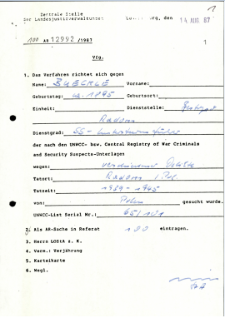 Zentrale Stelle
der Landesjustizverwaltungen
14. AUG. 87
1
AR 12992 /1987
Vfg.
1. Das Verfahren richtet sich gegen
Name: BUBERLE Vorname:
Geburtstag: ca. 1895 Geburtsort:
Einheit: Dienststelle:
Radom
Dienstgrad: SS-
der nach den UNWCC- bzw. Central Registry of War Criminals
and Security Suspects-Unterlagen
wegen: verschiedener Delikte
Tatort: Radom i. Pol.
Tatzeit: 1939 - 1945
von: Polen gesucht wurde.
UNWCC-List Serial Nr.:
2. Als AR-Sache in Referat 100 eintragen.
3. Herrn LOStA z. K.
4. Verm.: Verjährung
5. Karteikarte
6. Wegl.